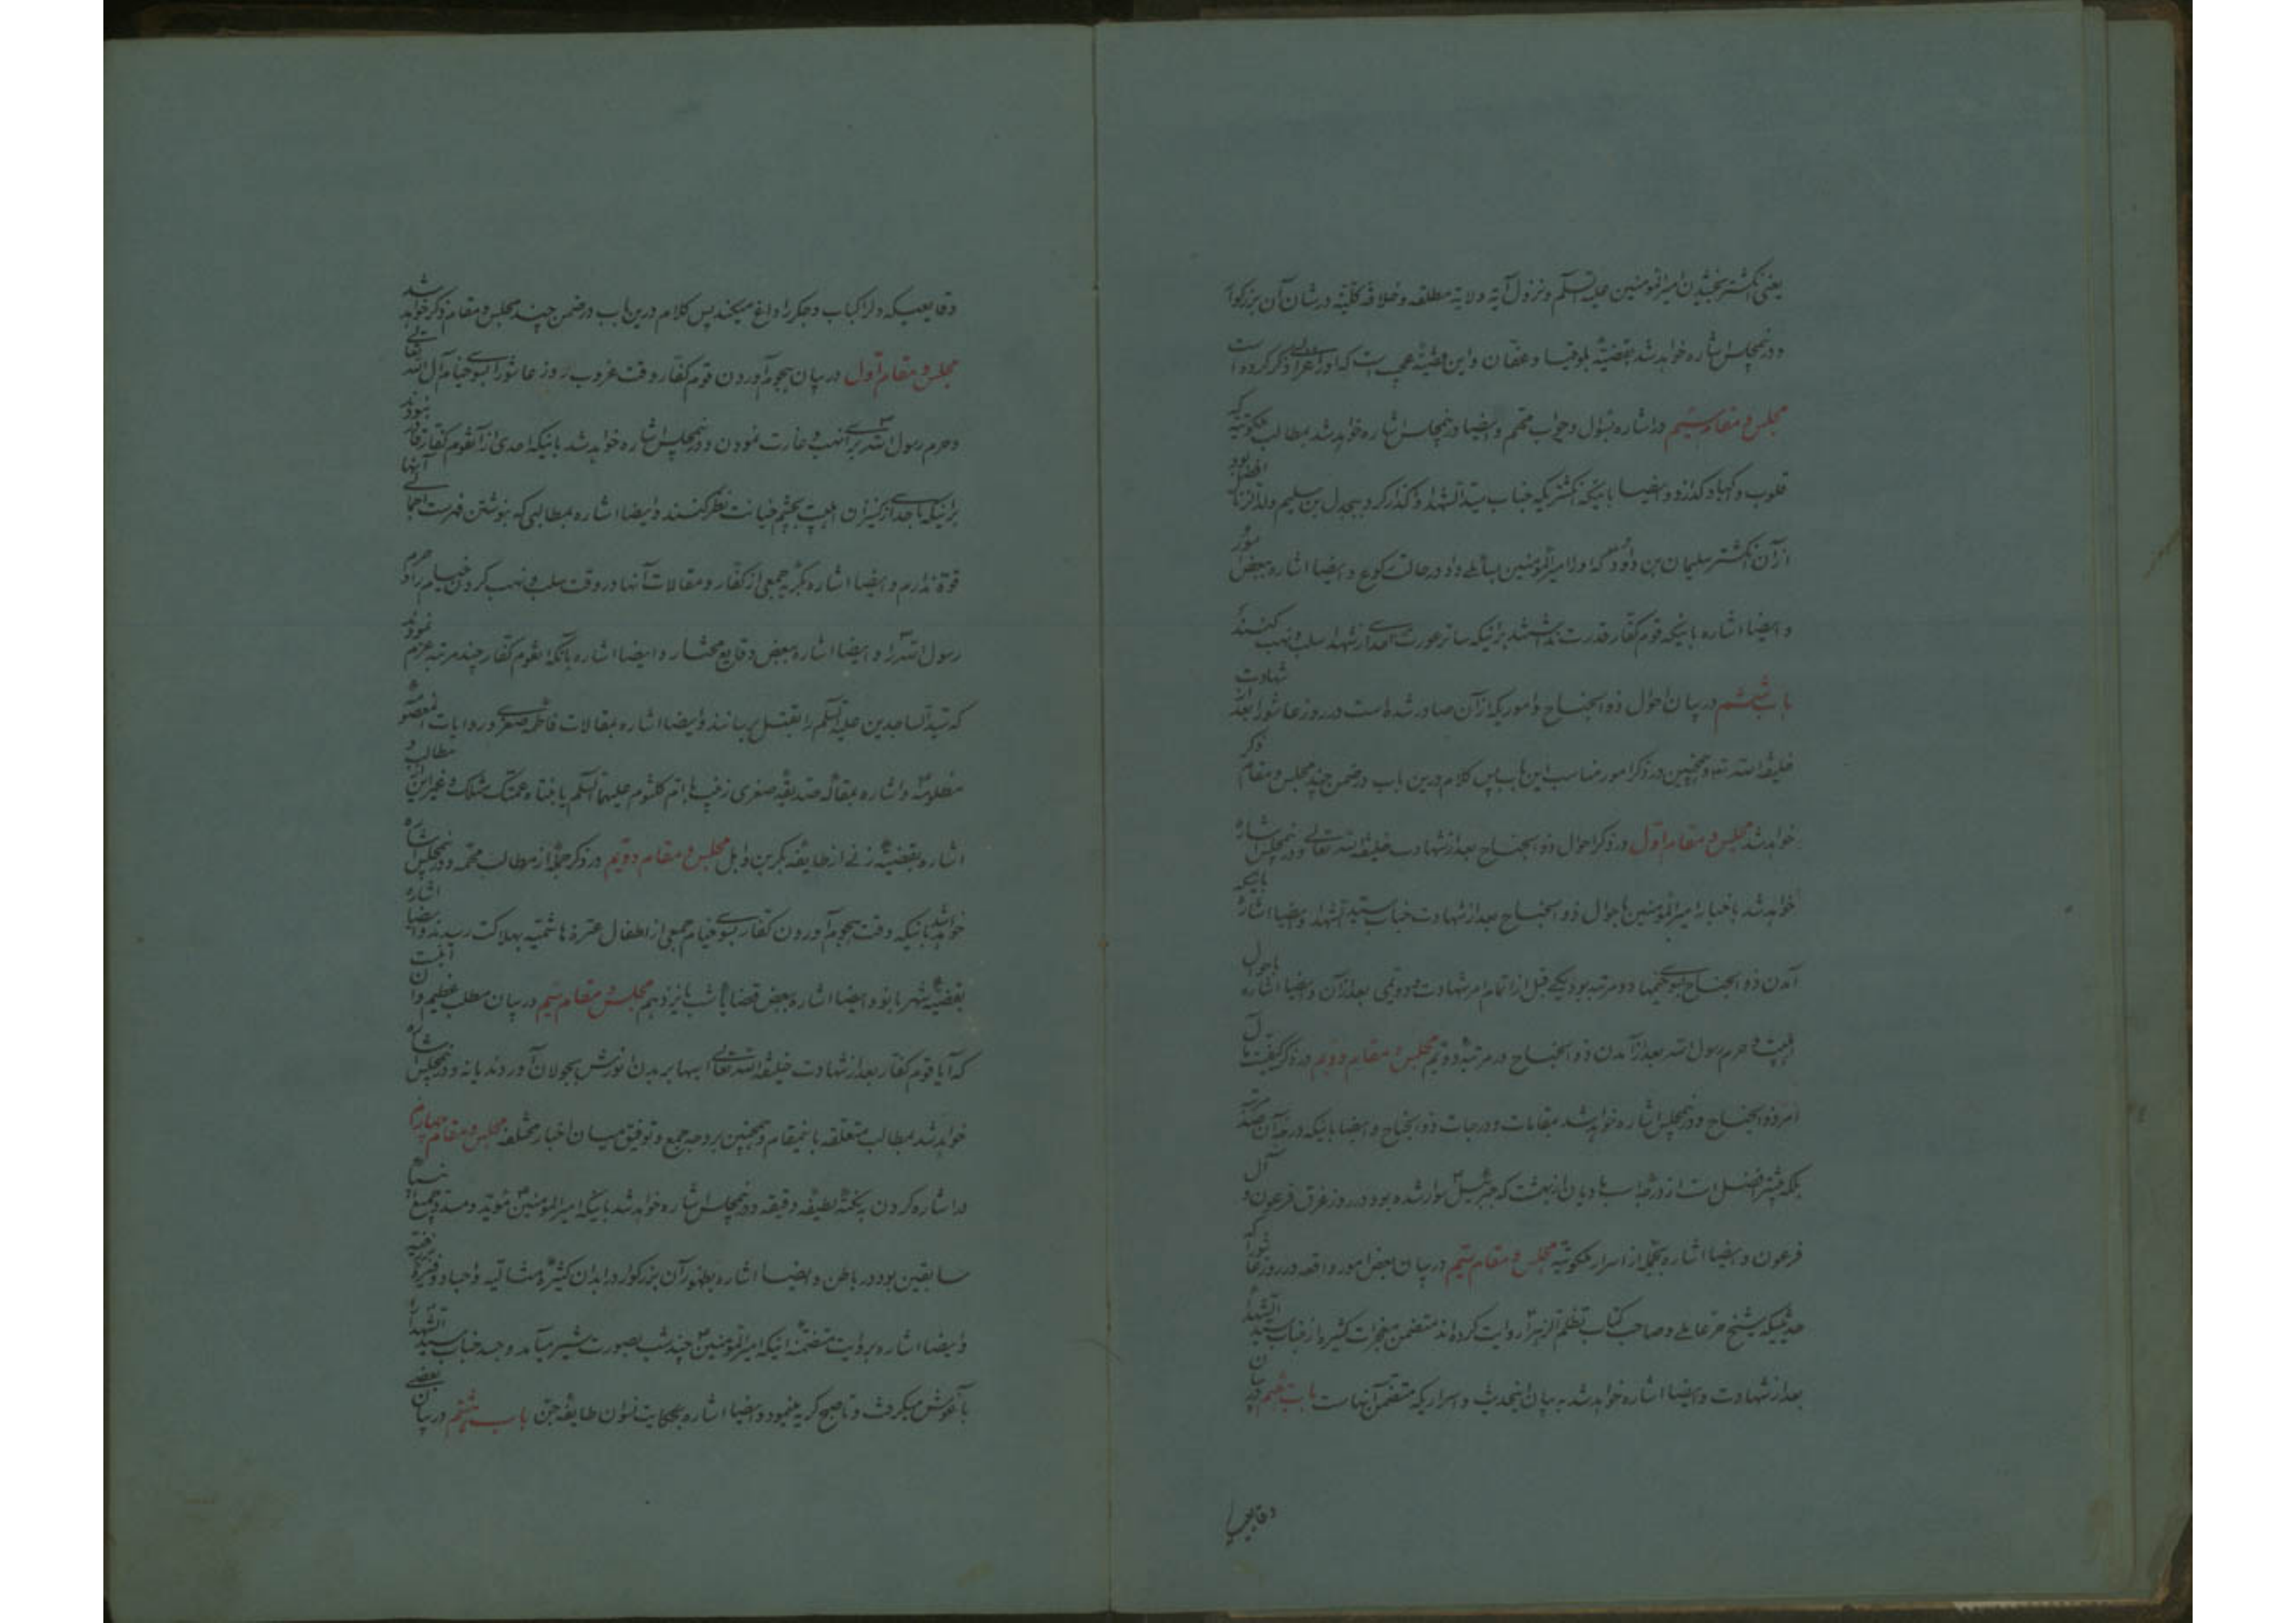 یعنی انگشتر بخشیدن امیرالمؤمنین علیه السلم و نزول آیة ولایة مطلقه و خلافة کلیة در شان آن بزرگوار
و در نمجلس اشاره خواهد شد بقضیهٔ بلوقیا و عفان و این قضیهٔ عجیب است که اورا ذکر کرده است
مجلس و مقام سیم در اشاره بسؤال و جواب مهم و ایضا در نمجلس اشاره خواهد شد بمطالب مکنونیه که
قلوب و اکباد گدازد و ایضا باینکه انگشتریکه جناب سید الشهداء ذکر کرد ببجدل بن سلیم ولد الزنا افضل بود
از آن انگشتر سلیمان بن داود که اورا امیرالمؤمنین بسائل داد در حالت رکوع و ایضا اشاره ببعض امور
و ایضا اشاره باینکه قوم کفار قدرت نداشتند بر اینکه ساتر عورت احدی از شهدا سلب و نهب کنند
باب ششم در بیان احوال ذو الجناح و اموریکه از آن صادر شده است در روز عاشورا بعد از شهادت
خلیفة الله و همچنین در ذکر امور مناسب این باب پس کلام درین باب در ضمن چند مجلس و مقام ذکر
خواهد شد مجلس و مقام اول در ذکر احوال ذو الجناح بعد از شهادت خلیفة الله تعالی و در نمجلس اشاره
خواهد شد باخبار امیرالمؤمنین باحوال ذو الجناح بعد از شهادت جناب سید الشهداء و ایضا اشاره باینکه
آمدن ذو الجناح بسوی خیمها دو مرتبه بود یکی قبل از اتمام امر شهادت و دویمی بعد از آن و ایضا اشاره باحوال
اهلبیت و حرم رسول الله بعد از آمدن ذو الجناح در مرتبهٔ دویم مجلس و مقام دویم در ذکر کیفیت مآل
امر ذو الجناح و در نمجلس اشاره خواهد شد بمقامات و درجات ذو الجناح و ایضا باینکه درجهٔ آن صد مرتبه
بلکه بیشتر افضل است از درجهٔ اسب مادیان از بهشت که جبرئیل سوار شده بود در روز غرق فرعون و آل
فرعون و ایضا اشاره بجمله از اسرار ملکوتیه مجلس و مقام سیم در بیان بعض امور واقعه در روز عاشورا که
حدیثیکه شیخ حر عاملی و صاحب کتاب تظلم الزهراء روایت کرده اند متضمن معجزات کثیره از جناب سید الشهداء
بعد از شهادت و ایضا اشاره خواهد شد به بیان این حدیث و اسراریکه متضمن آنهاست باب هفتم در بیان
وقایعیکه
وقایعیکه دلرا کباب و جگر را داغ میکند پس کلام درین باب در ضمن چند مجلس و مقام ذکر خواهد شد
مجلس و مقام اول در بیان هجوم آوردن قوم کفار وقت غروب روز عاشورا بسوی خیام آل الله تعالی
و حرم رسول الله برای نهب و غارت نمودن و در نمجلس اشاره خواهد شد باینکه احدی از آنقوم کفار قادر نبودند
براینکه باحدی از کنیزان اهلبیت بچشم خیانت نظر کنند و ایضا اشاره بمطالبی که بنوشتن فهرست اجمالی آنها
قوة ندارم و ایضا اشاره بگریه جمعی از کفار و مقالات آنها در وقت سلب و نهب کردن خیام حرم
رسول الله را و ایضا اشاره ببعض وقایع مختار و ایضا اشاره بآنکه آنقوم کفار چند مرتبه عزم نمودند
که سید الساجدین علیه السلم را بقتل برسانند و ایضا اشاره بمقالات فاطمه صغری و روایات المعصومه
مظلومه و اشاره بمقاله صدیقه صغری زینب یا ام کلثوم علیهما السلم یا بنتاه عمتک مثلک و غیر این از مطالب و
اشاره بقضیهٔ زنی از طایفه بکر بن وایل مجلس و مقام دویم در ذکر جمله از مطالب مهمه و در نمجلس اشاره
خواهد شد باینکه وقت هجوم آوردن کفار بسوی خیام جمعی از اطفال عترة هاشمیه بهلاکت رسیدند و ایضا اشاره
بقضیهٔ شهربانو و ایضا اشاره ببعض قضایا شب یازدهم مجلس و مقام سیم در بیان مطلب عظیم و آن اینست
که آیا قوم کفار بعد از شهادت خلیفة الله تعالی اسبها بر بدن انورش بجولان آوردند یا نه و در نمجلس اشاره
خواهد شد بمطالب متعلقه باینمقام و همچنین بر وجه جمع و توفیق میان اخبار مختلفه مجلس و مقام چهارم
در اشاره کردن بنکتهٔ لطیفه دقیقه و در نمجلس اشاره خواهد شد باینکه امیرالمؤمنین مؤید و مسدد جمیع انبیاء
سابقین بود در باطن و ایضا اشاره بظهور آن بزرگوار در ابدان کثیرهٔ مثالیه و اجساد
و ایضا اشاره بروایت متضمنه اینکه امیرالمؤمنین چند شب بصورت شیر میآمد و جسد جناب سید الشهداء
بآغوش میگرفت و تا صبح گریه مینمود و ایضا اشاره بحکایت نسوان طایفه جن باب هشتم در بیان بعضی